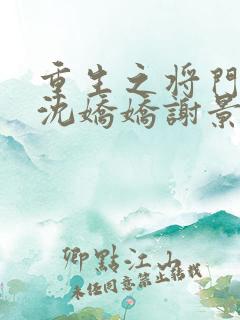 重生之将門
沈嬌嬌謝景
卿點江山
未經同意禁止轉載